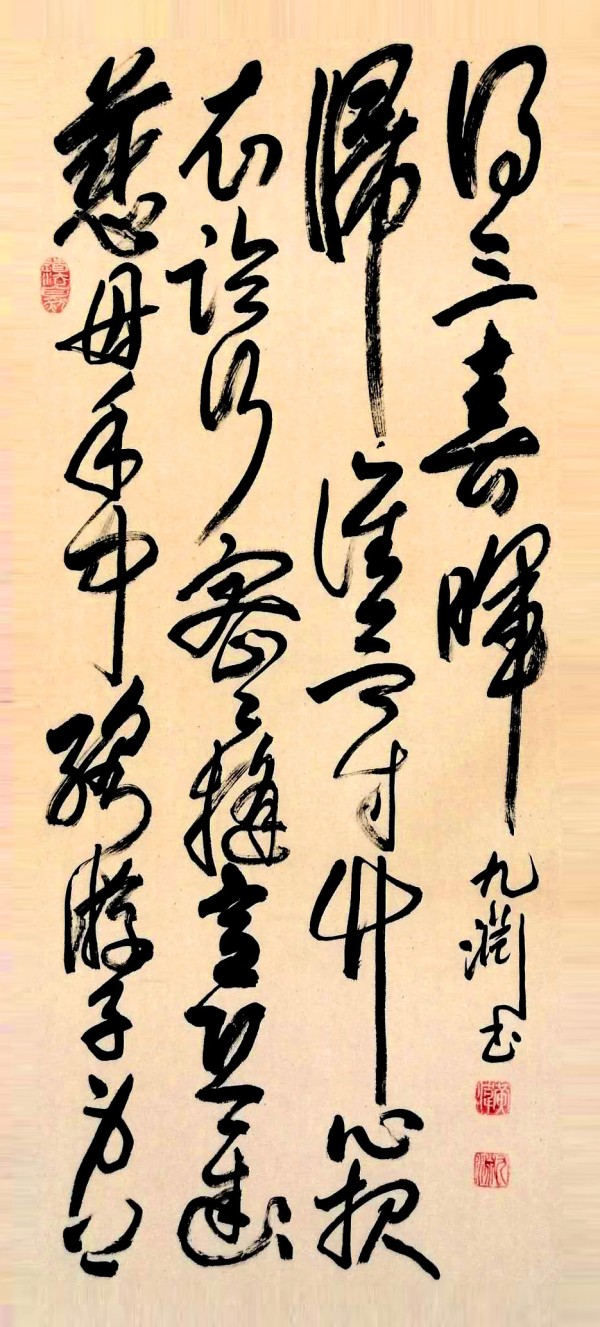 慈母手中線游子身上
衣臨行密密縫意恐遲遲
歸誰言寸草心報
得三春暉
九淵书